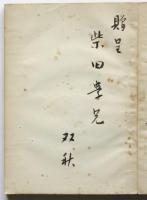 贈呈
柴田學兄
双秋